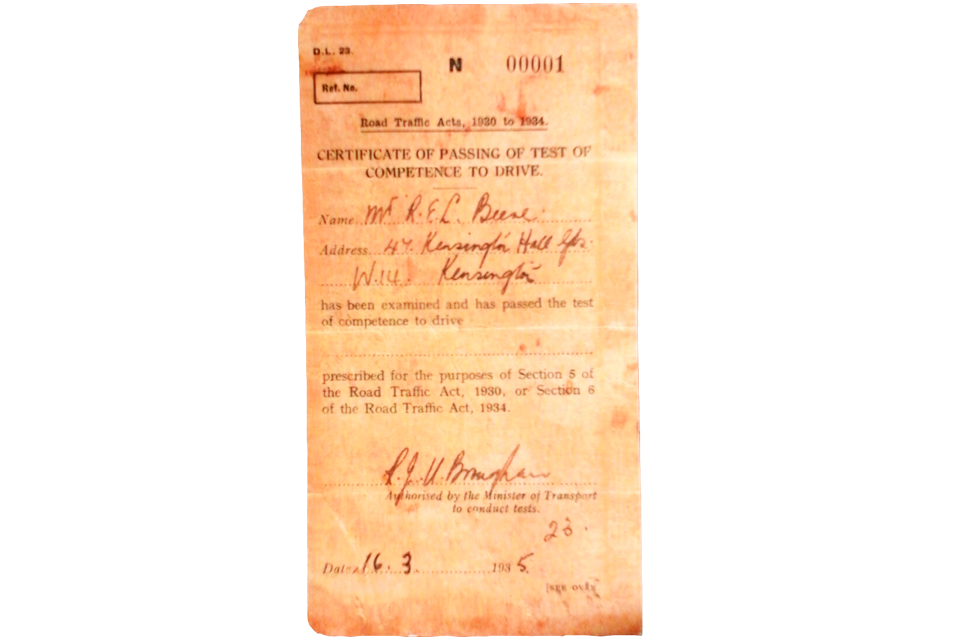 D.L. 23.
N 00001
Ref. No.
Road Traffic Acts, 1930 to 1934.
CERTIFICATE OF PASSING OF TEST OF
COMPETENCE TO DRIVE.
Name Mr R.E.L. Beere
Address 47. Kensington Hall Gdns.
W.14. Kensington
has been examined and has passed the test
of competence to drive
prescribed for the purposes of Section 5 of
the Road Traffic Act, 1930, or Section 6
of the Road Traffic Act, 1934.
Authorised by the Minister of Transport
to conduct tests.
23.
Date 16.3. 1935.